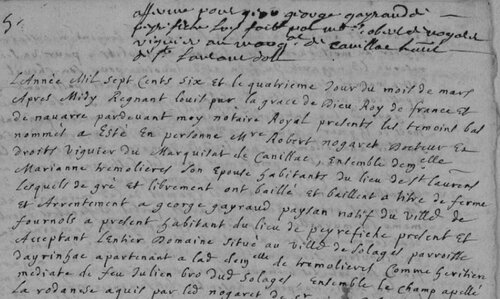 5.
afferme pour george gayraud de
peyrefiche Luy fait par mre robert nogaret
viguier au marqt de canillac
de st Laurans dolt
L'Année Mil sept Cents six Et le quatrieme Jour du mois de mars
Apres Midy Regnant Louis par la grace de Dieu Roy de france et
de navarre pardevant moy notaire Royal presents les temoins bas
nommes a Esté En personne Mre Robert nogaret Docteur Es
Droits Viguier du Marquisat de Canillac, Ensemble demlle
Marianne tremolieres Son Epouse habitants du lieu de St Laurens
Lesquels de gré et librement ont baillé et baillent a titre de ferme
Et Arrentement a george gayraud paysan natif du Village
fournols a present habitant du lieu de peyrefiche present et
Acceptant L'Entier Domaine situé au Village de Solages parroisse
dayrinhac apartenant a lad demlle de tremolieres Comme heritiere
mediate de feu Julien bro dud Solages, Ensemble le champ apellé
La rodanese aquis par led nogaret de